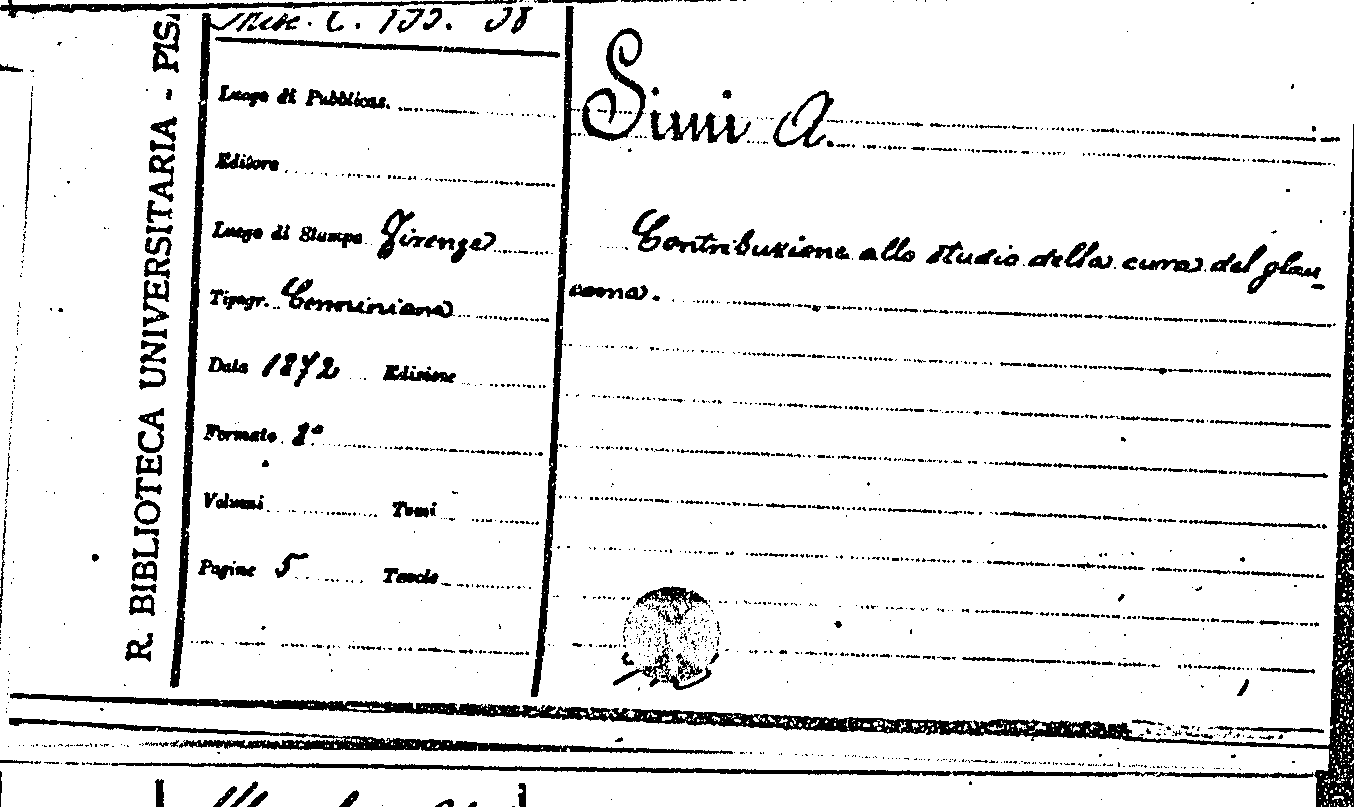 R. BIBLIOTECA UNIVERSITARIA - PISA
Misc. C. 133. 38
Luogo di Pubblicaz.
Editore
Luogo di Stampa Firenze
Tipogr. Cenniniana
Data 1872 Edizione
Formato 8°
Volumi Tomi
Pagine 5 Tavole
Simi A.
Contribuzione allo studio della cura del glau_
coma.